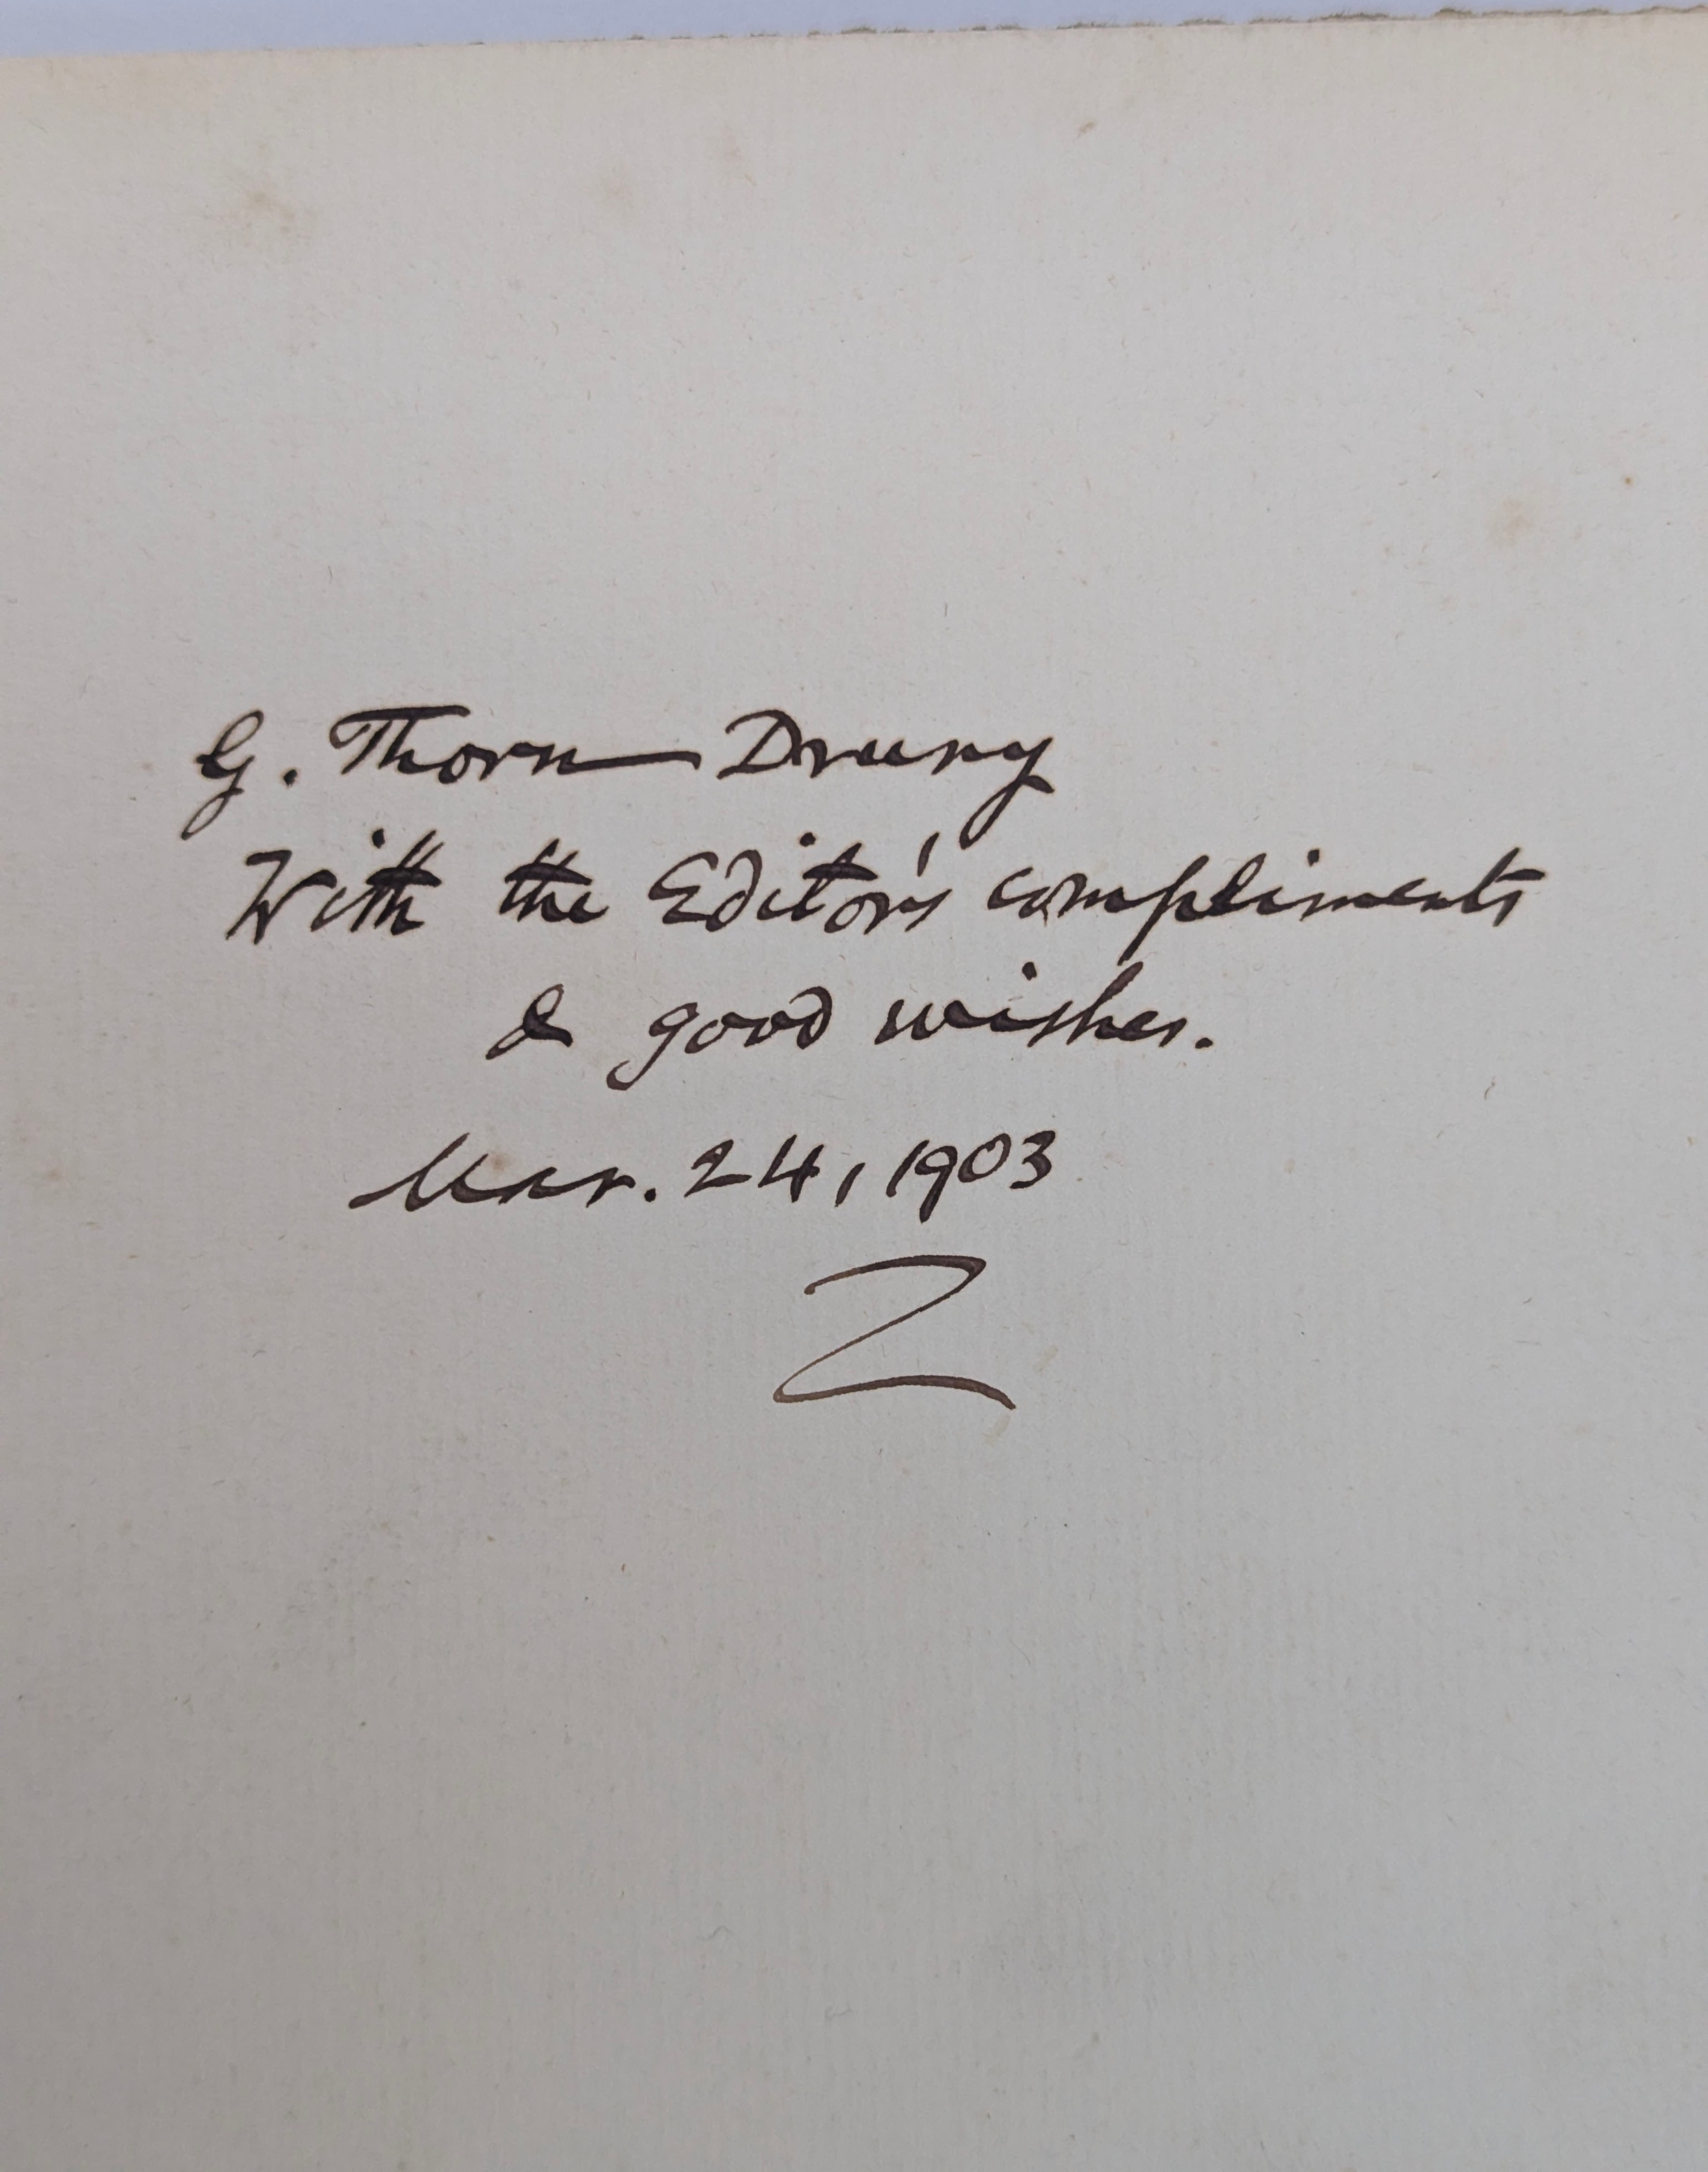 G. Thorn Drury
With the Editor's compliments
& good wishes.
Mar. 24, 1903